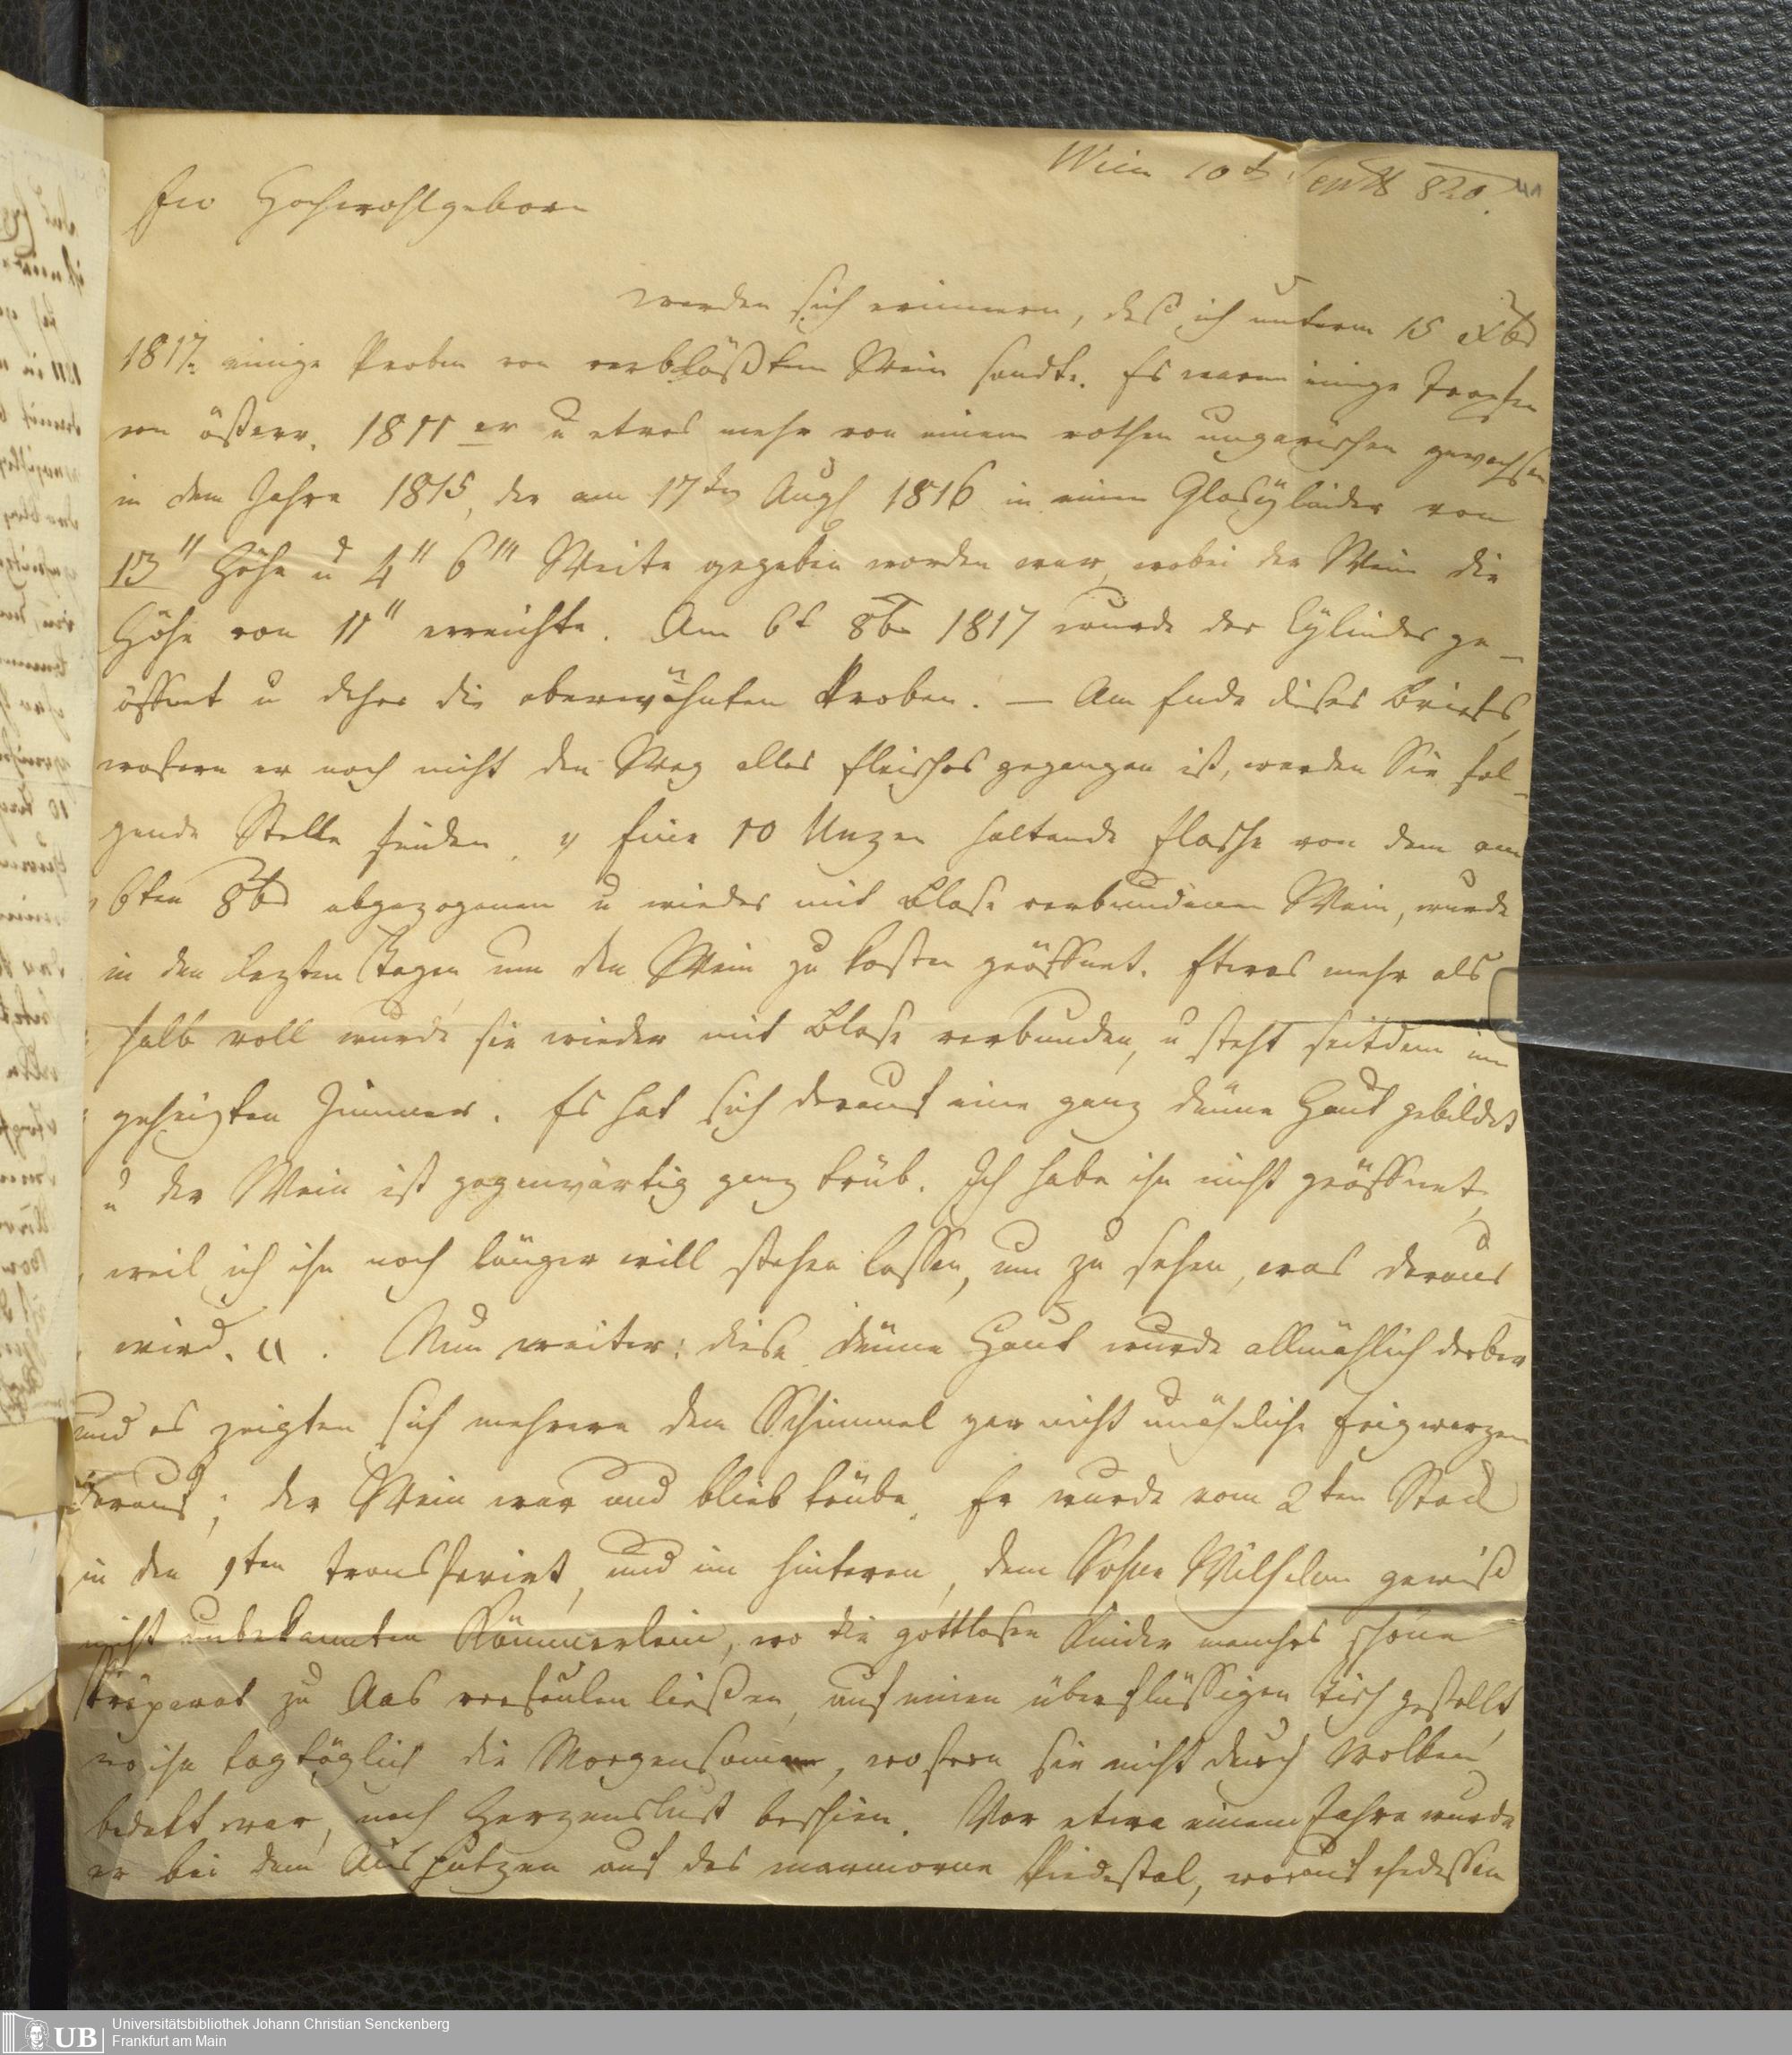 Wien 10t Septb 820.
41
Ew Hochwohlgeborn
werden sich erinnern, daß ich unterm 15 Xbr
1817. einige Proben von verblaßtem Wein sandte. Es waren einige Tropfen
von österr. 1811er u etwas mehr von einem rothen ungarischen gewachsen
in dem Jahre 1815, der am 17ten Augst 1816 in einen Glascylinder von
13" Höhe u 4" 6''' Weite gegeben worden war, wobei der Wein die
Höhe von 11" erreichte. Am 6t 8br 1817 wurde der Cylinder ge-
öffnet u daher die oberwähnten Proben. — Am Ende dieses Briefs,
wofern er noch nicht den Weg alles Fleisches gegangen ist, werden Sie fol-
gende Stelle finden. „ Eine 10 Unzen haltende Flasche von dem am
6ten 8br abgezogenen u wieder mit Blase verbundenen Wein, wurde
in den lezten Tagen um den Wein zu kosten geöffnet. Etwas mehr als
halb voll wurde sie wieder mit Blase verbunden, u steht seitdem im
geheizten Zimmer. Es hat sich darauf eine ganz dünne Haut gebildet
u der Wein ist gegenwärtig ganz trüb. Ich habe ihn nicht geöffnet,
weil ich ihn noch länger will stehen lassen, um zu sehen, was daraus
wird. “. Nun weiter: diese dünne Haut wurde allmählich derber
und es zeigten sich mehrere dem Schimmel gar nicht unähnliche Feigwarzen
darauf; der Wein war und blieb trübe. Er wurde vom 2ten Stock
in den 1ten transferirt, und im hinteren, dem Sohne Wilhelm gewiß
nicht unbekannten Kämmerlein, wo die gottlosen Kinder manches schöne
Präparat zu Aas verfaulen ließen, auf einen überflüssigen Tisch gestellt,
wo ihn tagtäglich die Morgensonne, wofern sie nicht durch Wolken
bedekt war, nach Herzenslust beschien. Vor etwa einem Jahre wurde
er bei dem Ausputzen auf das marmorne Piedestal, worauf ehedessen
UB
Universitätsbibliothek Johann Christian Senckenberg
Frankfurt am Main